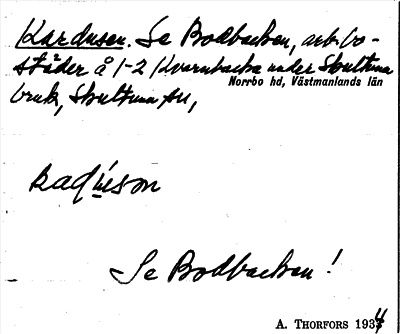 Kardusen. Se Bodbacken, arb.bo-
städer å 1-2 Kvarnbacka under Skultuna
Norrbo hd, Västmanlands län
bruk, Skultuna sn,
Se Bodbacken!
A. THORFORS 1934